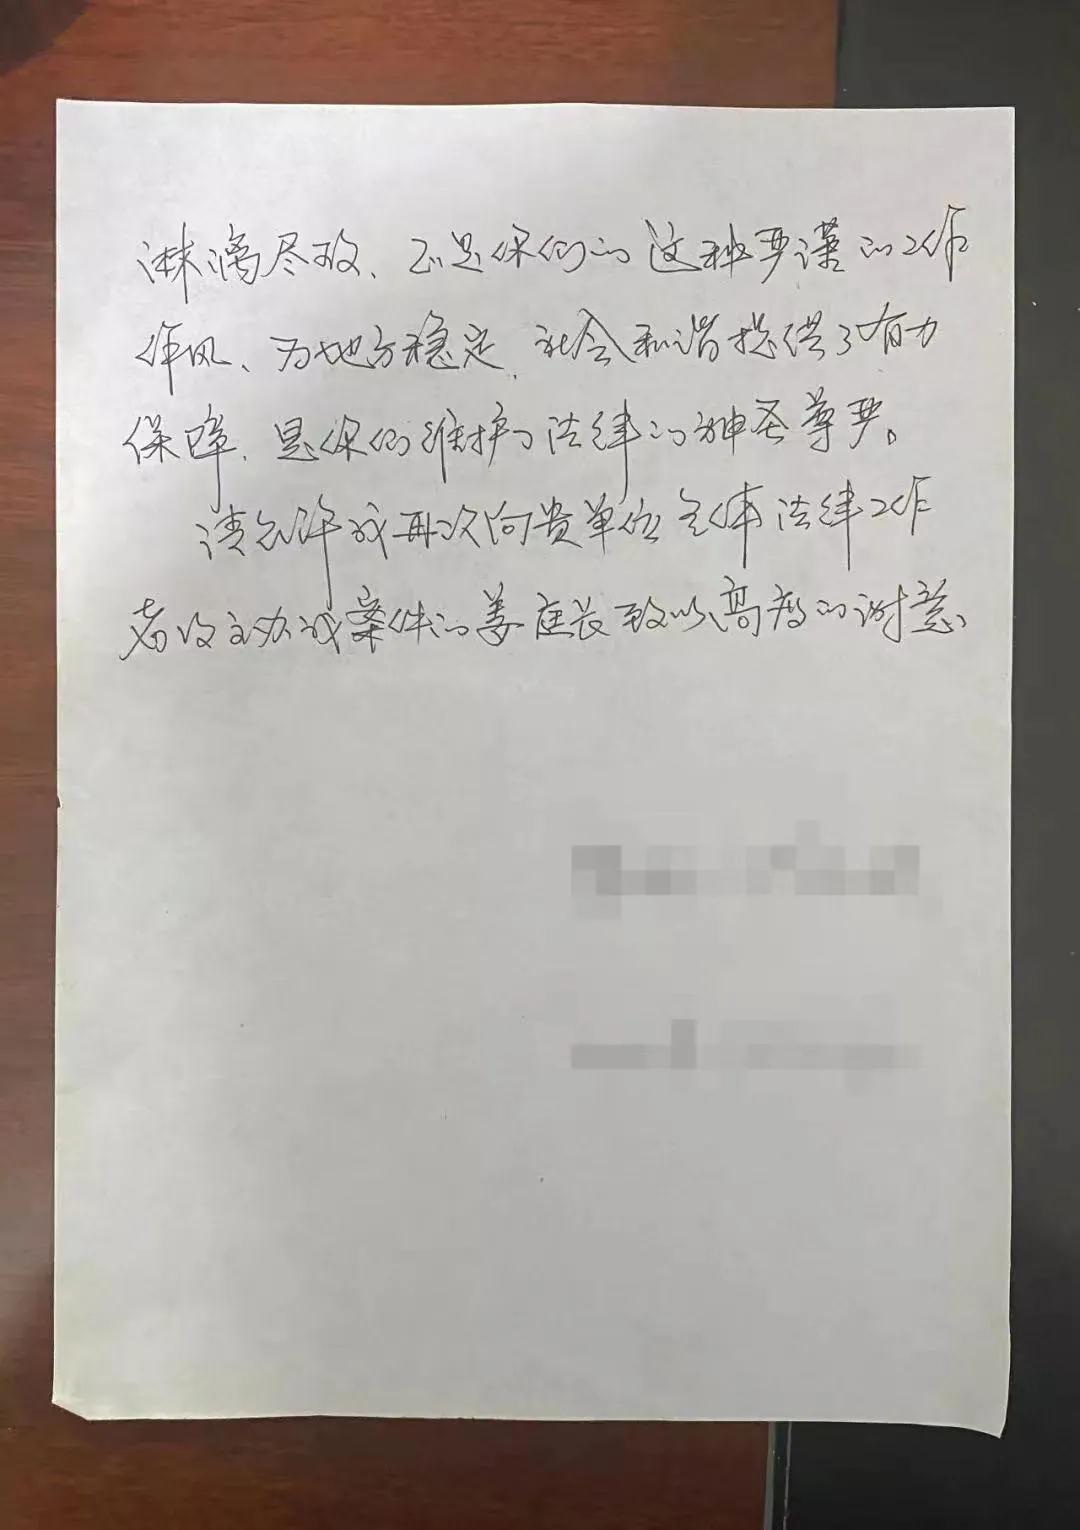 淋漓尽致、正是你们的这种严谨的工作
作风、为地方稳定,社会和谐提供了有力
保障,是你们维护了法律的神圣尊严。
请允许我再次向贵单位全体法律工作
者及主办我案件的姜庭长致以高度的谢意、